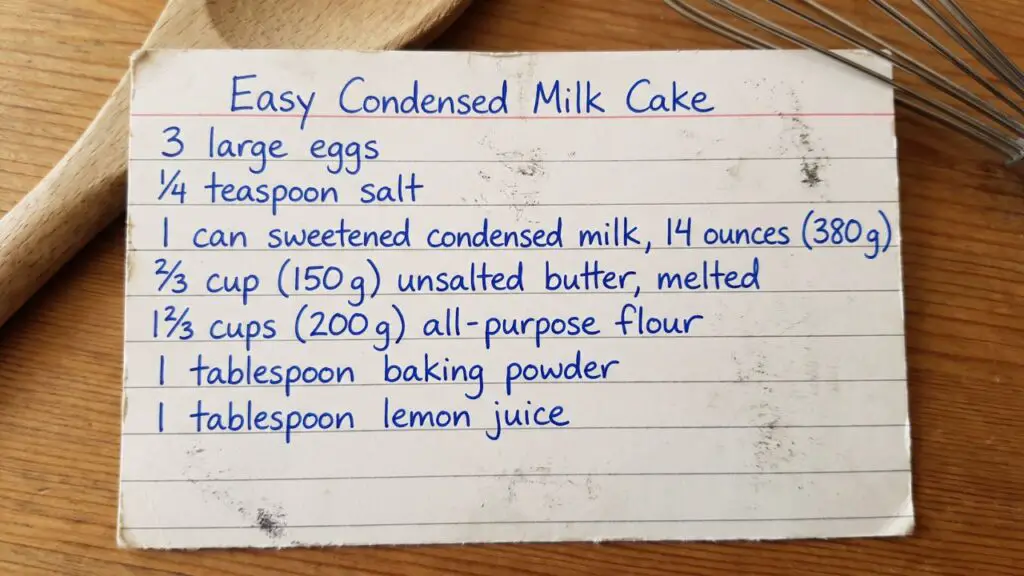 Easy Condensed Milk Cake
3 large eggs
¼ teaspoon salt
1 can sweetened condensed milk, 14 ounces (380g)
⅔ cup (150g) unsalted butter, melted
1⅔ cups (200g) all-purpose flour
1 tablespoon baking powder
1 tablespoon lemon juice